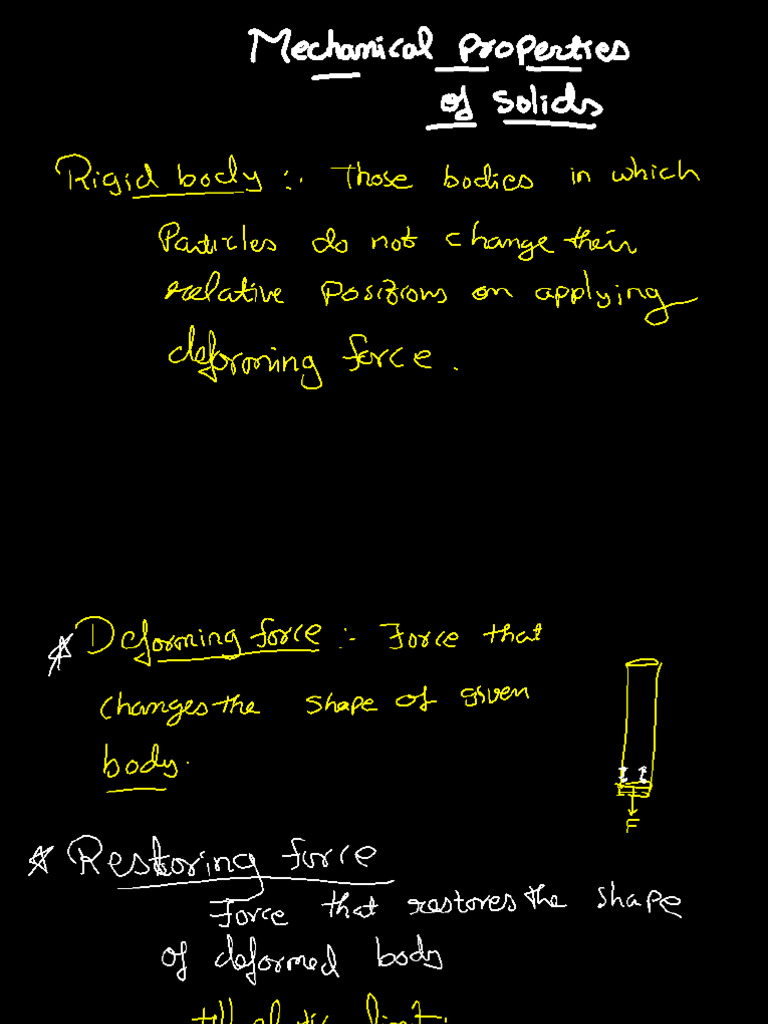 Mechanical properties
of solids
Rigid body :- Those bodies in which
Particles do not change their
relative positions on applying
deforming force.
* Deforming force :- Force that
changes the shape of given
body.
F
* Restoring force
Force that restores the shape
of deformed body
till elastic limit.